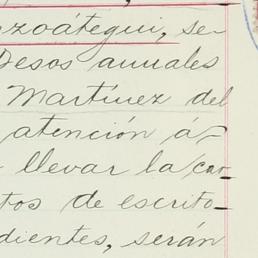 nzoátegui, se-
Pesos anuales
Martínez del
atención á-
llevar la cor
tos de escrito-
dientes, serán